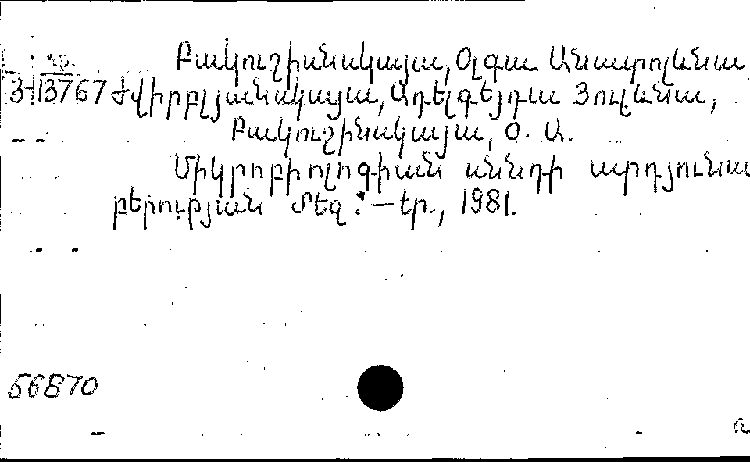 Բակուշինսկայա, Օլգա Անատոլևնա
3-13767 Ժվիրբլյանսկայա, Ադելգեյդա Յուլևնա,
Բակուշինսկայա, Օ. Ա.
Միկրոբիոլոգիան սննդի արդյունա
բերության մեջ. — Եր., 1981.
56870